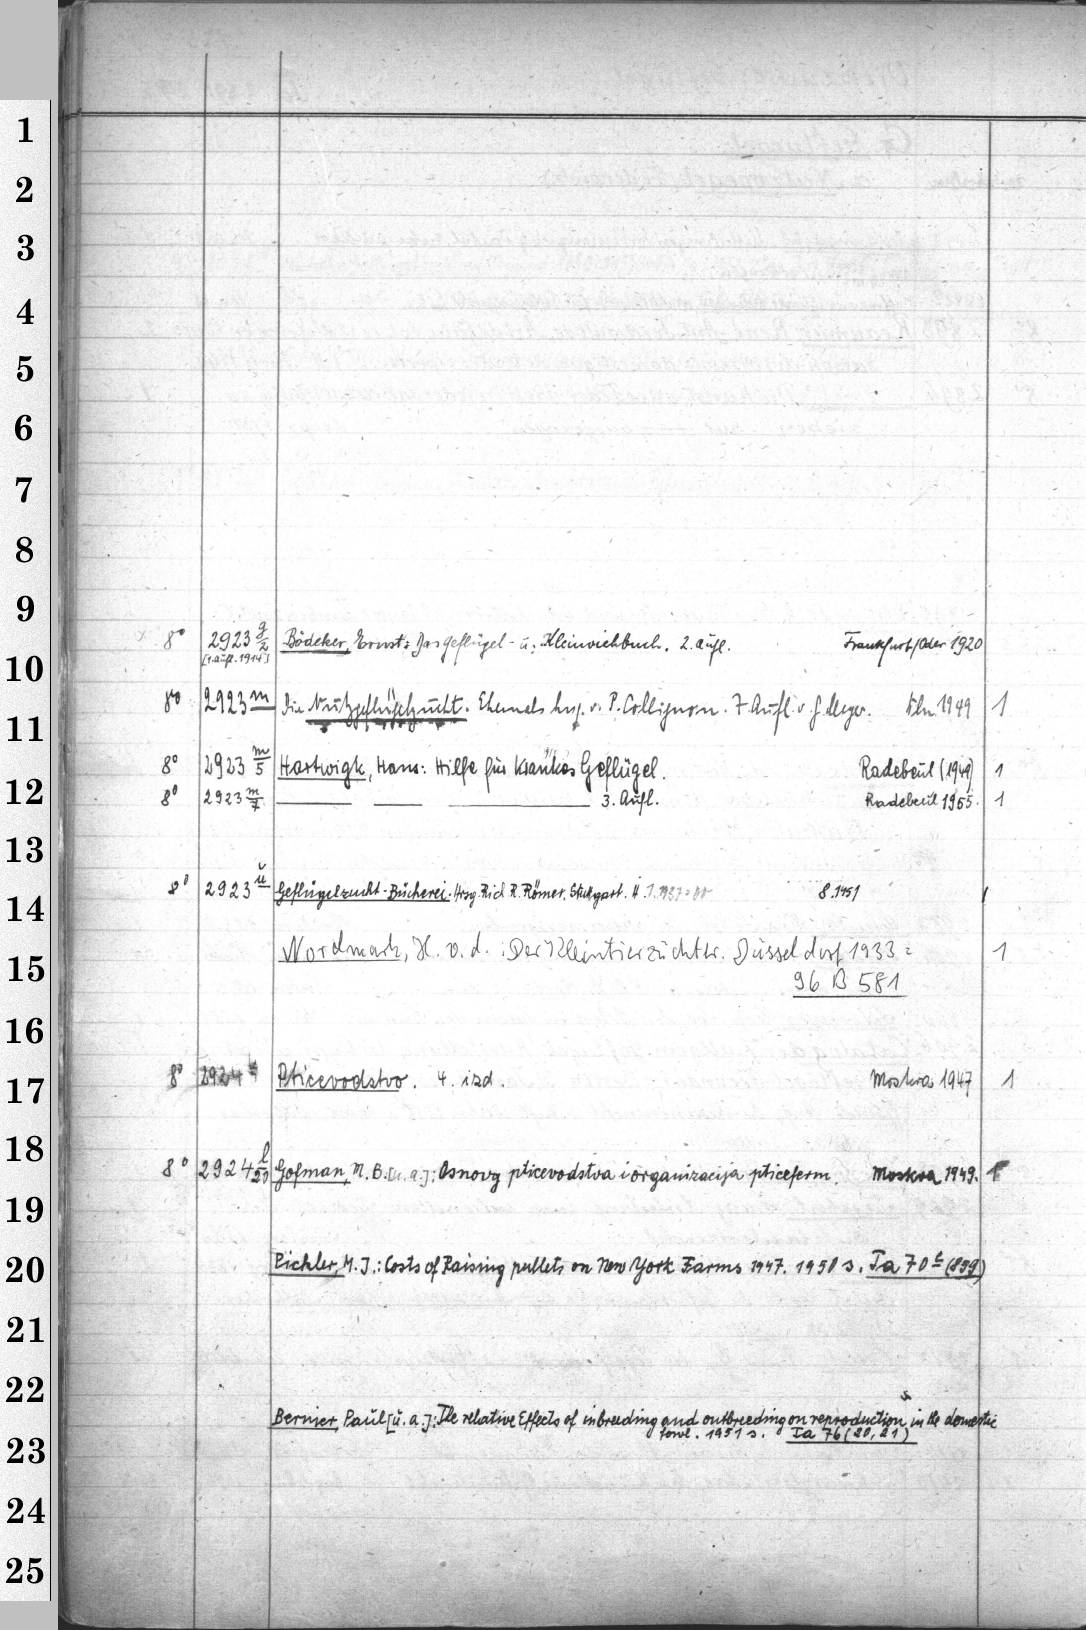 1
2
3
4
5
6
7
8
9
8° 2923 g/2 Bödeker, Ernst: Das Geflügel- u. Kleinviehbuch. 2. Aufl. Frankfurt/Oder 1920
[1. Aufl. 1914]
10
8° 2923 m Die Nutzgeflügelzucht. Ehemals hrsg. v. P. Collignon. 7. Aufl. v. Bln. 1949 1
11
8° 2923 m/5 Hartwigk, Hans: Hilfe für krankes Geflügel. Radebeul (1949) 1
12
8° 2923 m/7 3. Aufl. Radebeul 1955. 1
13
8° 2923 u Geflügelzucht-Bücherei. Hrsg. Rich. R. Römer. Stuttgart. H. 8.1951 1
14
Nordmark, H. v. d.: Der Kleintierzüchter. Düsseldorf 1933 = 1
15
96 B 581
16
8° 2924 Pticevodstvo. 4. izd. Moskva 1947 1
17
18
8° 2924 l/20 Gofman, M. B. [u. a.]: Osnovy pticevodstva i organizacija pticeferm. Moskva 1949. 1
19
20
Eichler, M. J.: Costs of Raising pullets on New York Farms 1947. 1950 s. Ia 70 c (899)
21
22
Bernier, Paul [u. a.]: The relative Effects of inbreeding and outbreeding on reproduction in the domestic
fowl. 1951 s. Ia 76 (20, 21)
23
24
25